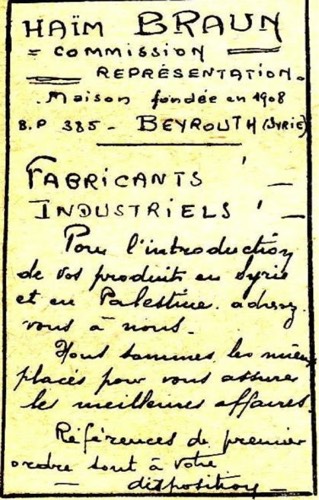 HAÏM BRAUN
= COMMISSION =
= REPRÉSENTATION.
Maison fondée en 1908
B.P 385 - BEYROUTH (Syrie)
FABRICANTS ! —
INDUSTRIELS ! —
Pour l'introduction
de vos produits en Syrie
et en Palestine, adressez
vous à nous.
Nous sommes les mieux
placés pour vous assurer
les meilleures affaires.
Références de premier
ordre sont à votre
— disposition —